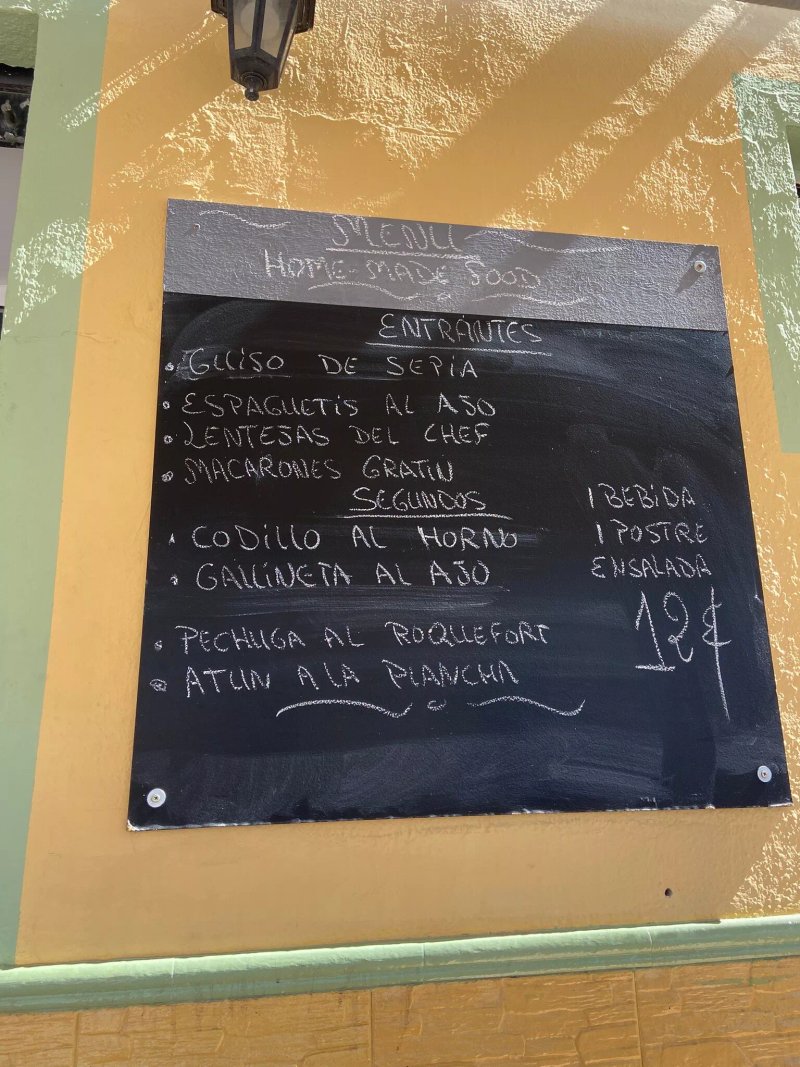 MENU
HOME-MADE FOOD
ENTRANTES
• GUISO DE SEPIA
• ESPAGUETIS AL AJO
• LENTEJAS DEL CHEF
• MACARONES GRATIN
SEGUNDOS
• CODILLO AL HORNO
• GALLINETA AL AJO
• PECHUGA AL ROQUEFORT
• ATUN A LA PLANCHA
1 BEBIDA
1 POSTRE
ENSALADA
12€